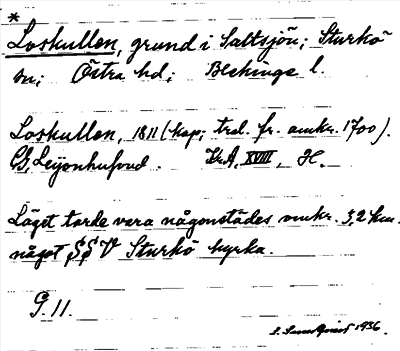 *
Loskullen, grund i Saltsjön; Sturkö
sn; Östra hd; Blekinge l.
Loskullen, 1811 (kop; trol. fr. omkr. 1700).
G. Leijonhufvud. Kr.A, XVIII, H.
Läget torde vara någonstädes omkr. 3,2 km.
något SSV Sturkö kyrka.
G. 11.
1936